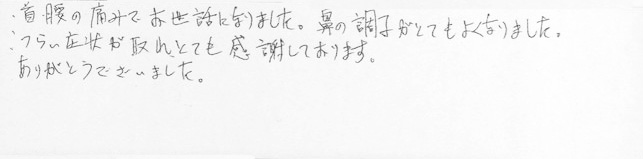 ・首、腰の痛みでお世話になりました。鼻の調子がとてもよくなりました。
・つらい症状が取れ、とても感謝しております。
ありがとうございました。